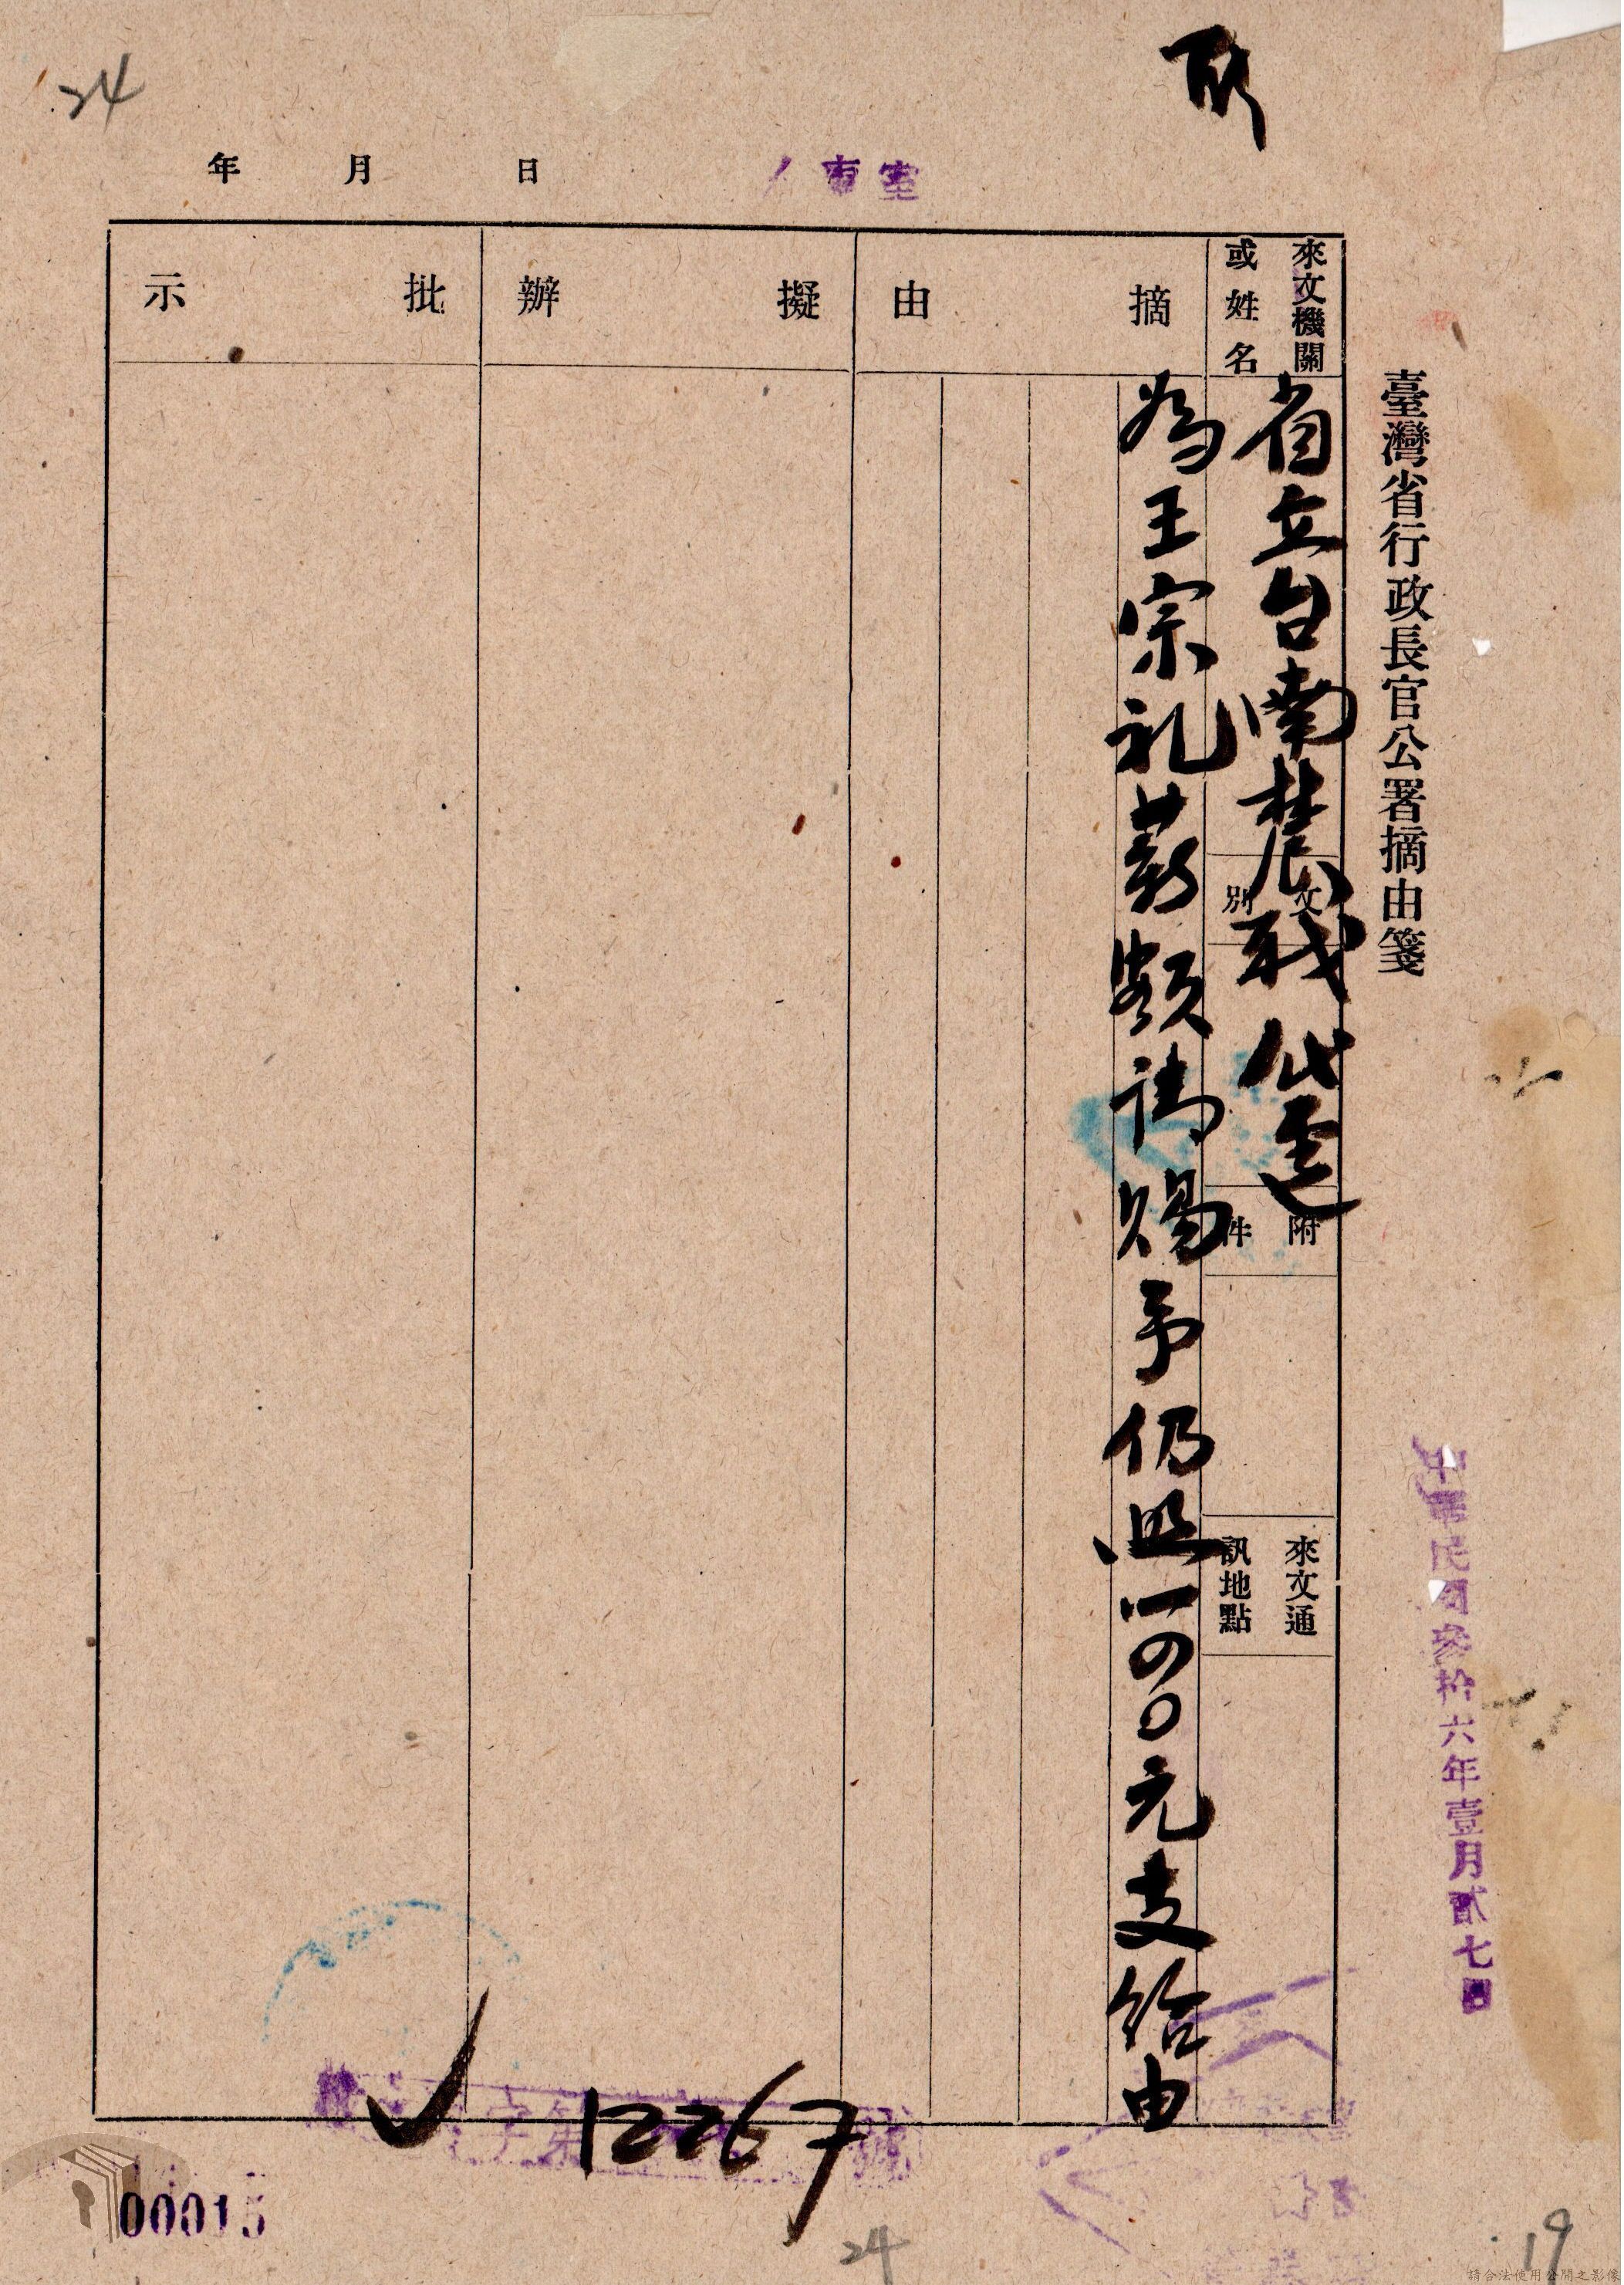 24
年 月 日
人事室
臺灣省行政長官公署摘由箋
中華民國參拾六年壹月貳七日
來文機關
或姓名
省立台南農職代電
文別
附件
來文通
訊地點
摘由
為王宗礼薪額請賜予仍照一四〇元支給由
擬辦
批示
字第 號
12267
00015
24
19
請合法使用公開之影像